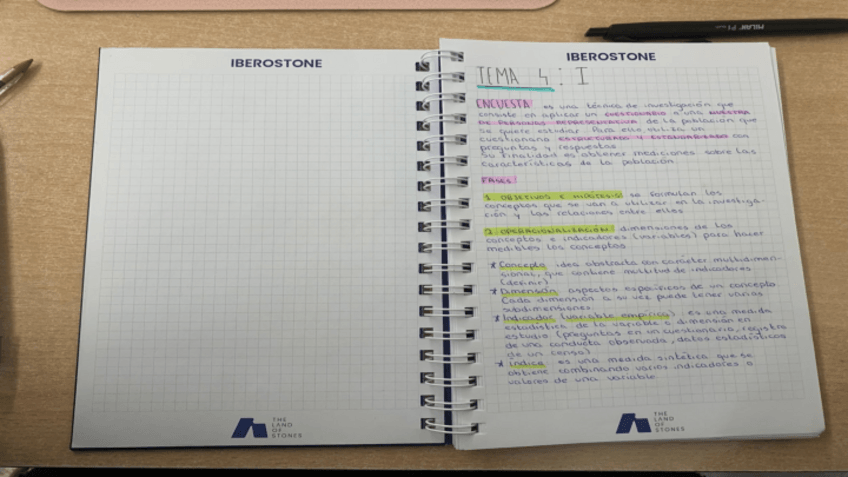 IBEROSTONE
THE
LAND
OF
STONES
IBEROSTONE
TEMA 4: I
ENCUESTA: es una técnica de investigación que
consiste en aplicar un CUESTIONARIO a una MUESTRA
DE PERSONAS REPRESENTATIVA de la población que
se quiere estudiar. Para ello, utiliza un
cuestionario ESTRUCTURADO Y ESTANDARIZADO con
preguntas y respuestas.
Su finalidad es obtener mediciones sobre las
características de la población.
FASES:
1. OBJETIVOS E HIPÓTESIS: se formulan los
conceptos que se van a utilizar en la investiga-
ción y las relaciones entre ellos
2. OPERACIONALIZACIÓN: dimensiones de los
conceptos e indicadores (variables) para hacer
medibles los conceptos
* Concepto: idea abstracta con carácter multidimen-
sional, que contiene multitud de indicadores
(definir)
* Dimensión: aspectos específicos de un concepto.
Cada dimensión a su vez puede tener varias
subdimensiones.
* Indicador (variable empírica): es una medida
estadística de la variable o dimensión en
estudio (preguntas en un cuestionario, registro
de una conducta observada, datos estadísticos
de un censo)
* Índice: es una medida sintética que se
obtiene combinando varios indicadores o
valores de una variable.
THE
LAND
OF
STONES
MILAN P1